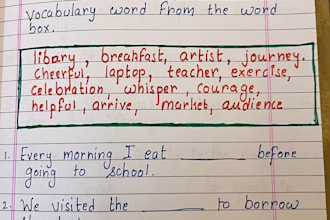 vocabulary word from the word
box.
libary, breakfast, artist, journey.
cheerful, laptop, teacher, exercise,
celebration, whisper, courage,
helpful, arrive, market, audience
1. Every morning I eat ________ before
going to school.
2. We visited the ________ to borrow